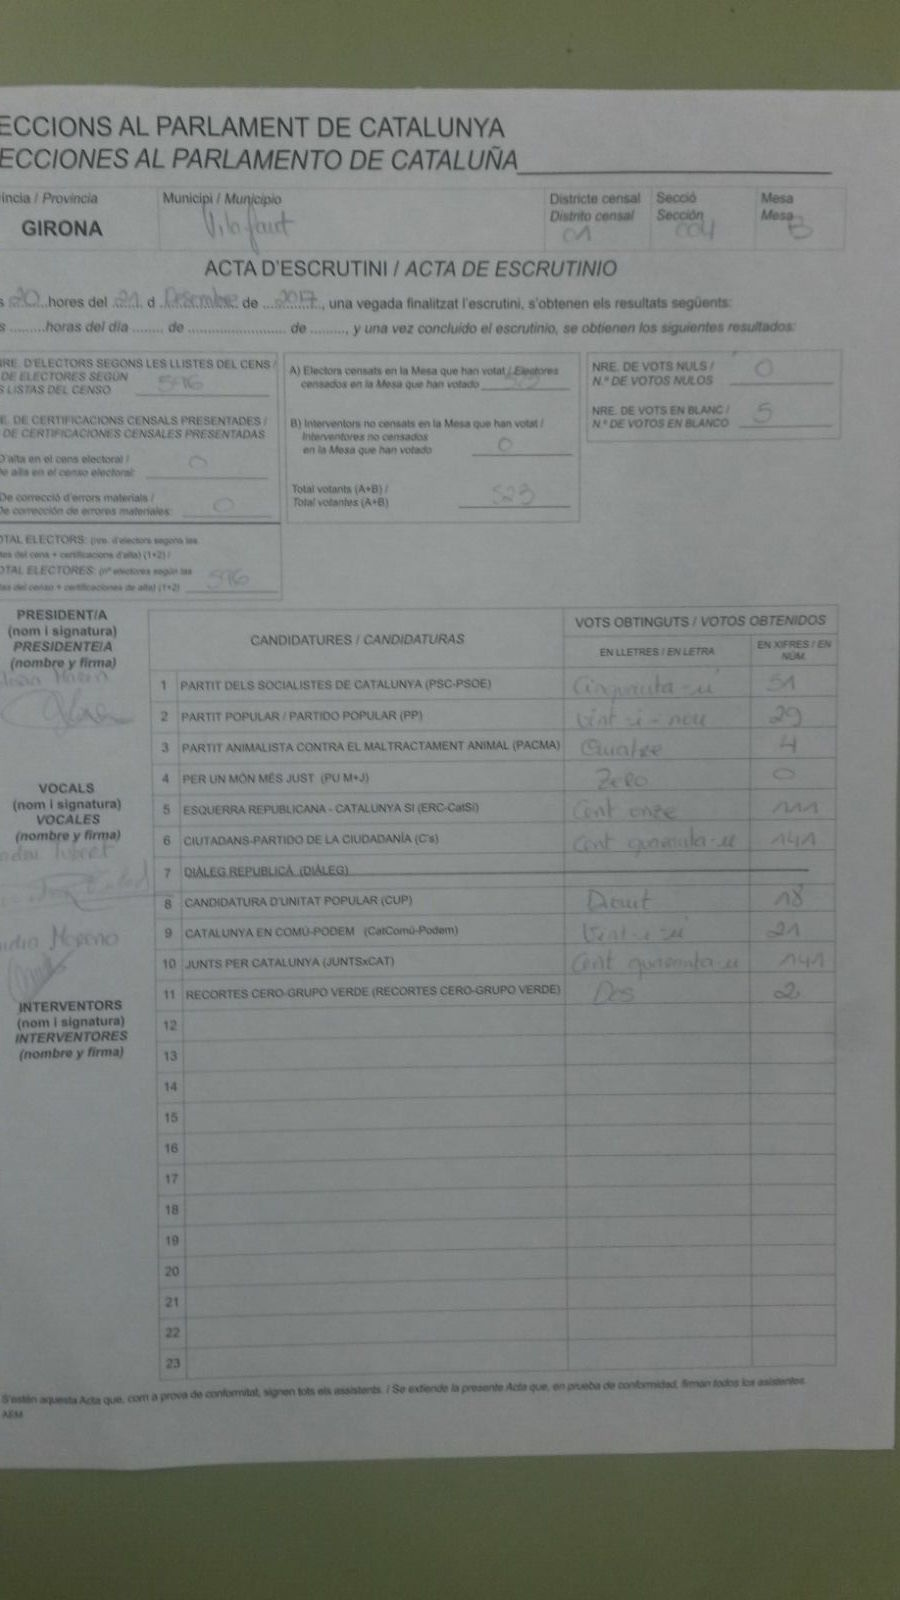 ECCIONS AL PARLAMENT DE CATALUNYA
ECCIONES AL PARLAMENTO DE CATALUÑA
íncia / Provincia
GIRONA
Municipi / Municipio
Vilafant
Districte censal
Distrito censal
01
Secció
Sección
004
Mesa
Mesa
B
ACTA D'ESCRUTINI / ACTA DE ESCRUTINIO
s 20 hores del 21 d Desembre de 2017, una vegada finalitzat l'escrutini, s'obtenen els resultats següents:
s ......... horas del día ........ de ........................ de ........., y una vez concluido el escrutinio, se obtienen los siguientes resultados:
NRE. D'ELECTORS SEGONS LES LLISTES DEL CENS /
DE ELECTORES SEGÚN
S LISTAS DEL CENSO 596
E. DE CERTIFICACIONS CENSALS PRESENTADES /
DE CERTIFICACIONES CENSALES PRESENTADAS
D'alta en el cens electoral /
De alta en el censo electoral: 0
De correcció d'errors materials /
De corrección de errores materiales: 0
OTAL ELECTORS: (nre. d'electors segons les
tes del cens + certificacions d'alta) (1+2) /
OTAL ELECTORES: (nº electores según las
tas del censo + certificaciones de alta) (1+2) 596
A) Electors censats en la Mesa que han votat / Electores
censados en la Mesa que han votado 523
B) Interventors no censats en la Mesa que han votat /
Interventores no censados
en la Mesa que han votado 0
Total votants (A+B) /
Total votantes (A+B) 523
NRE. DE VOTS NULS /
N.º DE VOTOS NULOS 0
NRE. DE VOTS EN BLANC /
N.º DE VOTOS EN BLANCO 5
PRESIDENT/A
(nom i signatura)
PRESIDENTE/A
(nombre y firma)
VOCALS
(nom i signatura)
VOCALES
(nombre y firma)
Moreno
INTERVENTORS
(nom i signatura)
INTERVENTORES
(nombre y firma)
CANDIDATURES / CANDIDATURAS
VOTS OBTINGUTS / VOTOS OBTENIDOS
EN LLETRES / EN LETRA
EN XIFRES / EN NÚM.
1 PARTIT DELS SOCIALISTES DE CATALUNYA (PSC-PSOE) Cinquanta-u 51
2 PARTIT POPULAR / PARTIDO POPULAR (PP) Vint-i-nou 29
3 PARTIT ANIMALISTA CONTRA EL MALTRACTAMENT ANIMAL (PACMA) Quatre 4
4 PER UN MÓN MÉS JUST (PU M+J) Zero 0
5 ESQUERRA REPUBLICANA - CATALUNYA SI (ERC-CatSí) Cent onze 111
6 CIUTADANS-PARTIDO DE LA CIUDADANÍA (C's) Cent quaranta-u 141
7 DIÀLEG REPUBLICÀ (DIÀLEG)
8 CANDIDATURA D'UNITAT POPULAR (CUP) Divuit 18
9 CATALUNYA EN COMÚ-PODEM (CatComú-Podem) Vint-i-u 21
10 JUNTS PER CATALUNYA (JUNTSxCAT) Cent quaranta-u 141
11 RECORTES CERO-GRUPO VERDE (RECORTES CERO-GRUPO VERDE) Dos 2
12
13
14
15
16
17
18
19
20
21
22
23
S'estén aquesta Acta que, com a prova de conformitat, signen tots els assistents. / Se extiende la presente Acta que, en prueba de conformidad, firman todos los asistentes.
AEM